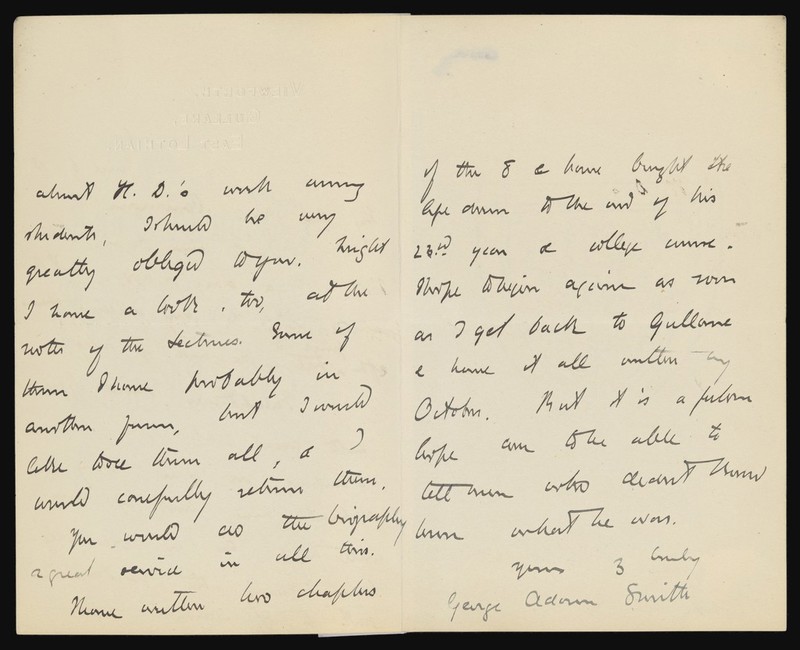 about H. D.'s work among
students, I should be very
greatly obliged to you. Might
I have a look, too, at the
notes of the Lectures. Some of
them I have probably in
another form, but I would
like to see them all, & I
would carefully return them.
You would do the biography
a great service in all this.
I have written two chapters
of the 8 & have brought the
life down to the end of his
23rd year & college course.
I hope to begin again as soon
as I get back to Gullane
& have it all written by
October. But it is a forlorn
hope to be able to
tell men who didn't know
him what he was.
Yours truly
George Adam Smith